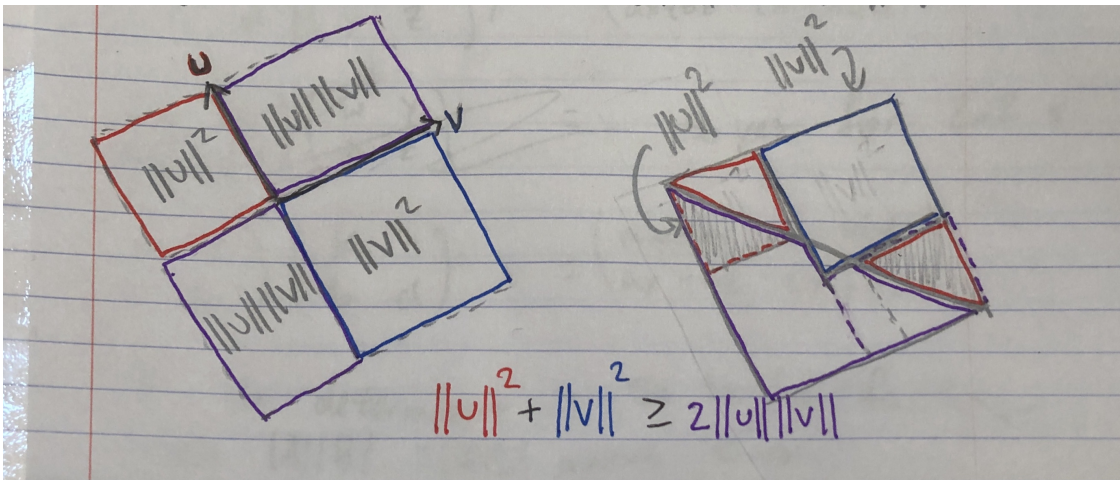 U
||u|| ||v||
V
||u||²
||v||²
||u|| ||v||
||u||²
||v||²
||u||² + ||v||² ≥ 2||u|| ||v||